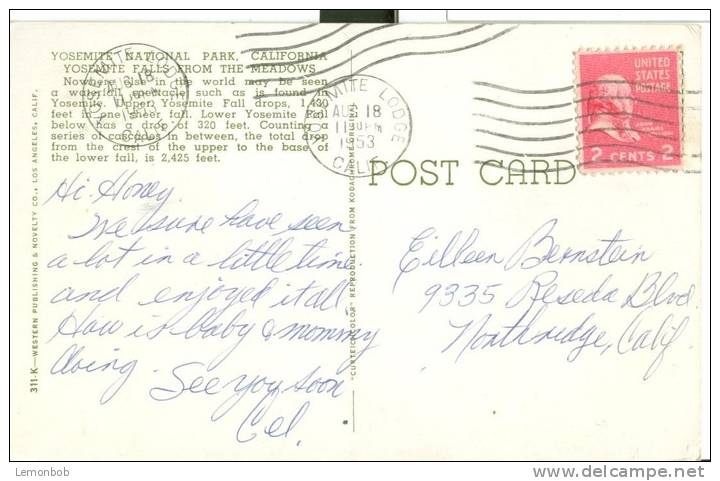 YOSEMITE NATIONAL PARK, CALIFORNIA
YOSEMITE FALLS FROM THE MEADOWS
Nowhere else in the world may be seen
a waterfall spectacle such as is found in
Yosemite. Upper Yosemite Fall drops, 1,430
feet in one sheer fall. Lower Yosemite Fall
below has a drop of 320 feet. Counting a
series of cascades in between, the total drop
from the crest of the upper to the base of
the lower fall, is 2,425 feet.
Hi Honey
We sure have seen
a lot in a little time.
and enjoyed it all
How is baby & mommy
doing. See you soon
Cel.
311-K—WESTERN PUBLISHING & NOVELTY CO., LOS ANGELES, CALIF.
"CURTEICHCOLOR" REPRODUCTION FROM KODACHROME ORIGINAL
YOSEMITE LODGE
AUG 18
1953
CALIF.
UNITED
STATES
POSTAGE
2 CENTS 2
POST CARD
Eilleen Bernstein
9335 Reseda Blvd.
Northridge, Calif
Lemonbob
delcampe.net